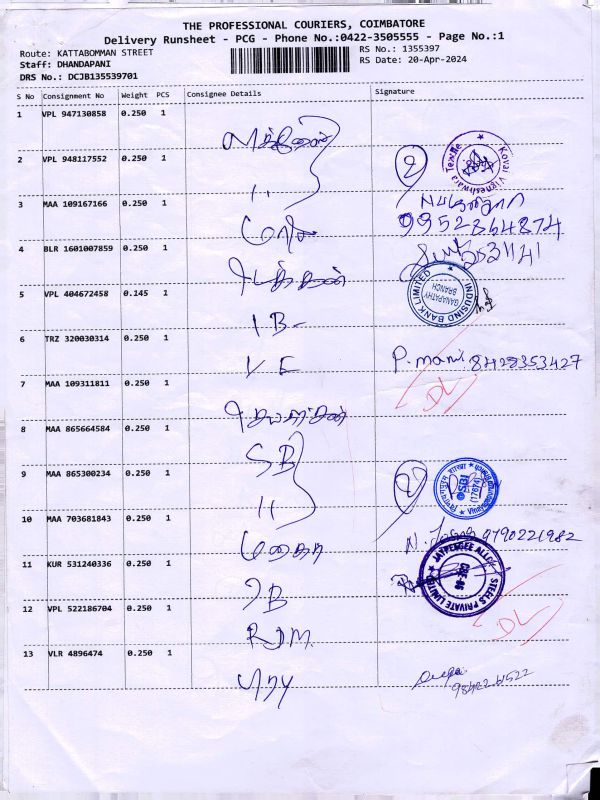 THE PROFESSIONAL COURIERS, COIMBATORE
Delivery Runsheet - PCG - Phone No.:0422-3505555 - Page No.:1
Route: KATTABOMMAN STREET
RS No.: 1355397
Staff: DHANDAPANI
RS Date: 20-Apr-2024
DRS No.: DCJB135539701
S No Consignment No Weight PCS Consignee Details Signature
1 VPL 947130858 0.250 1
2 VPL 948117552 0.250 1
2
Kovai Vigneshwara Textile
3 MAA 109167166 0.250 1
9952364874
4 BLR 1601007859 0.250 1
5 VPL 404672458 0.145 1
INDUSIND BANK LIMITED
GANAPATHY BRANCH
IB-
6 TRZ 320030314 0.250 1
VE
P. mani. 8428353427
DL
7 MAA 109311811 0.250 1
8 MAA 865664584 0.250 1
SB
9 MAA 865300234 0.250 1
11
2
SBI
(17674)
10 MAA 703681843 0.250 1
9790221982
11 KUR 531240336 0.250 1
JAYPEEGEE ALLOY STEELS PRIVATE LIMITED
CBE-46
IB
12 VPL 522186704 0.250 1
RDM.
DL
13 VLR 4896474 0.250 1